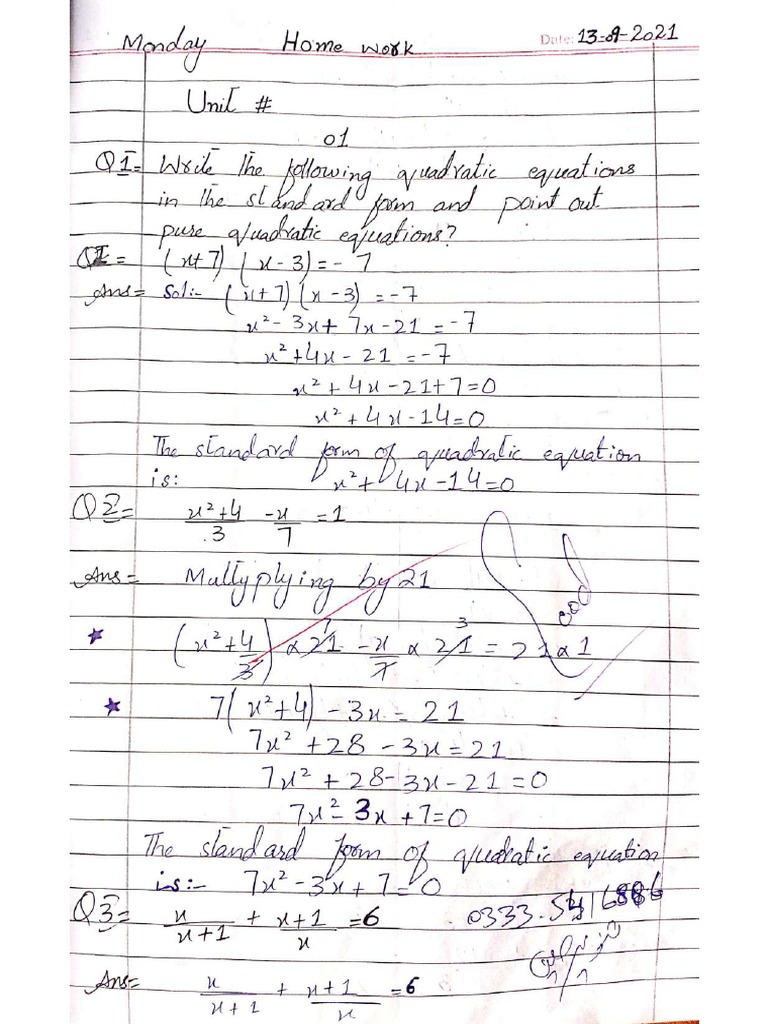 Monday Home work Date: 13-09-2021
Unit #
01
Q1= Write the following quadratic equations
in the standard form and point out
pure quadratic equations?
Q1= (x+7) (x-3) = - 7
Ans= Sol:- (x+7) (x-3) = -7
x² - 3x + 7x - 21 = -7
x² + 4x - 21 = -7
x² + 4x - 21 + 7 = 0
x² + 4x - 14 = 0
The standard form of quadratic equation
is: x² + 4x - 14 = 0
Q2= x²+4/3 - x/7 = 1
Ans= Multyplying by 21
Good
(x²+4/3) x 21 7 - x/7 x 21 3 = 21 x 1
7(x²+4) - 3x = 21
7x² + 28 - 3x = 21
7x² + 28 - 3x - 21 = 0
7x² - 3x + 7 = 0
The standard form of quadratic equation
is:- 7x² - 3x + 7 = 0
Q3= x/x+1 + x+1/x = 6
Ans= x/x+1 + x+1/x = 6